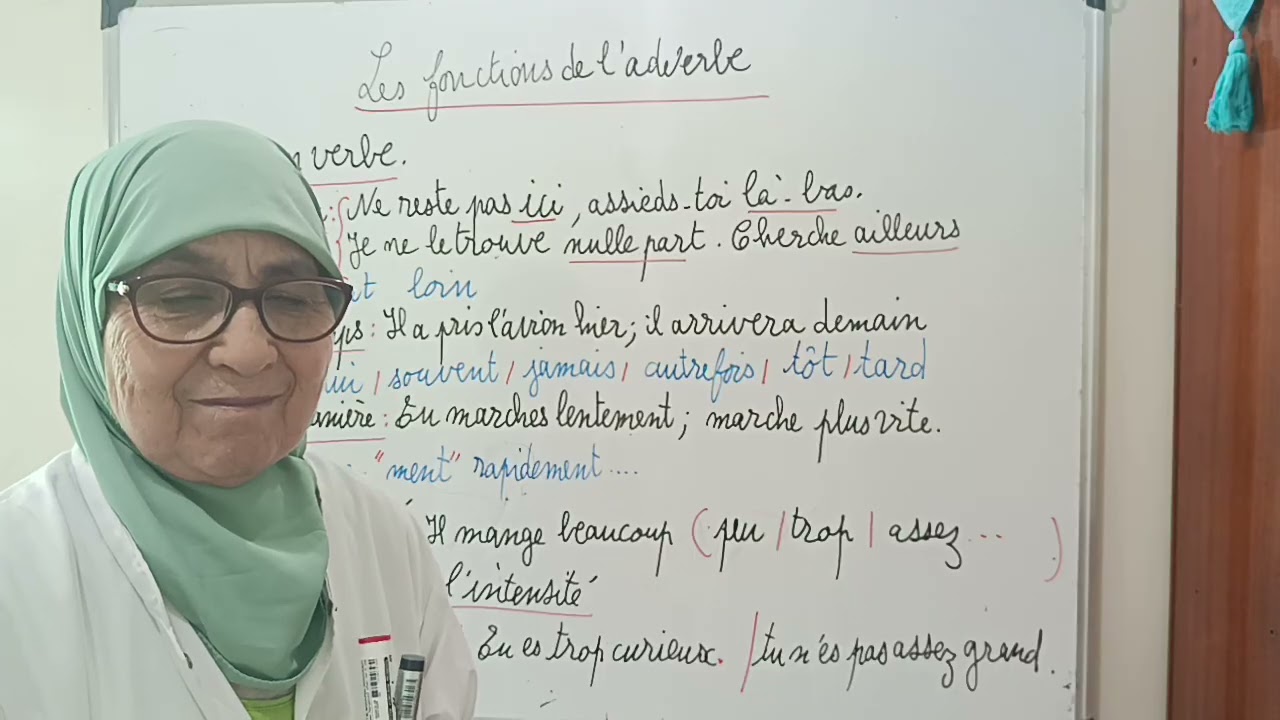 Les fonctions de l'adverbe
verbe.
: Ne reste pas ici, assieds-toi là-bas.
Je ne le trouve nulle part. Cherche ailleurs
loin
: Il a pris l'avion hier; il arrivera demain
/ souvent / jamais / autrefois / tôt / tard
: Tu marches lentement; marche plus vite.
"ment" rapidement....
Il mange beaucoup (peu / trop / assez... )
l'intensité
Tu es trop curieux. / tu n'es pas assez grand.